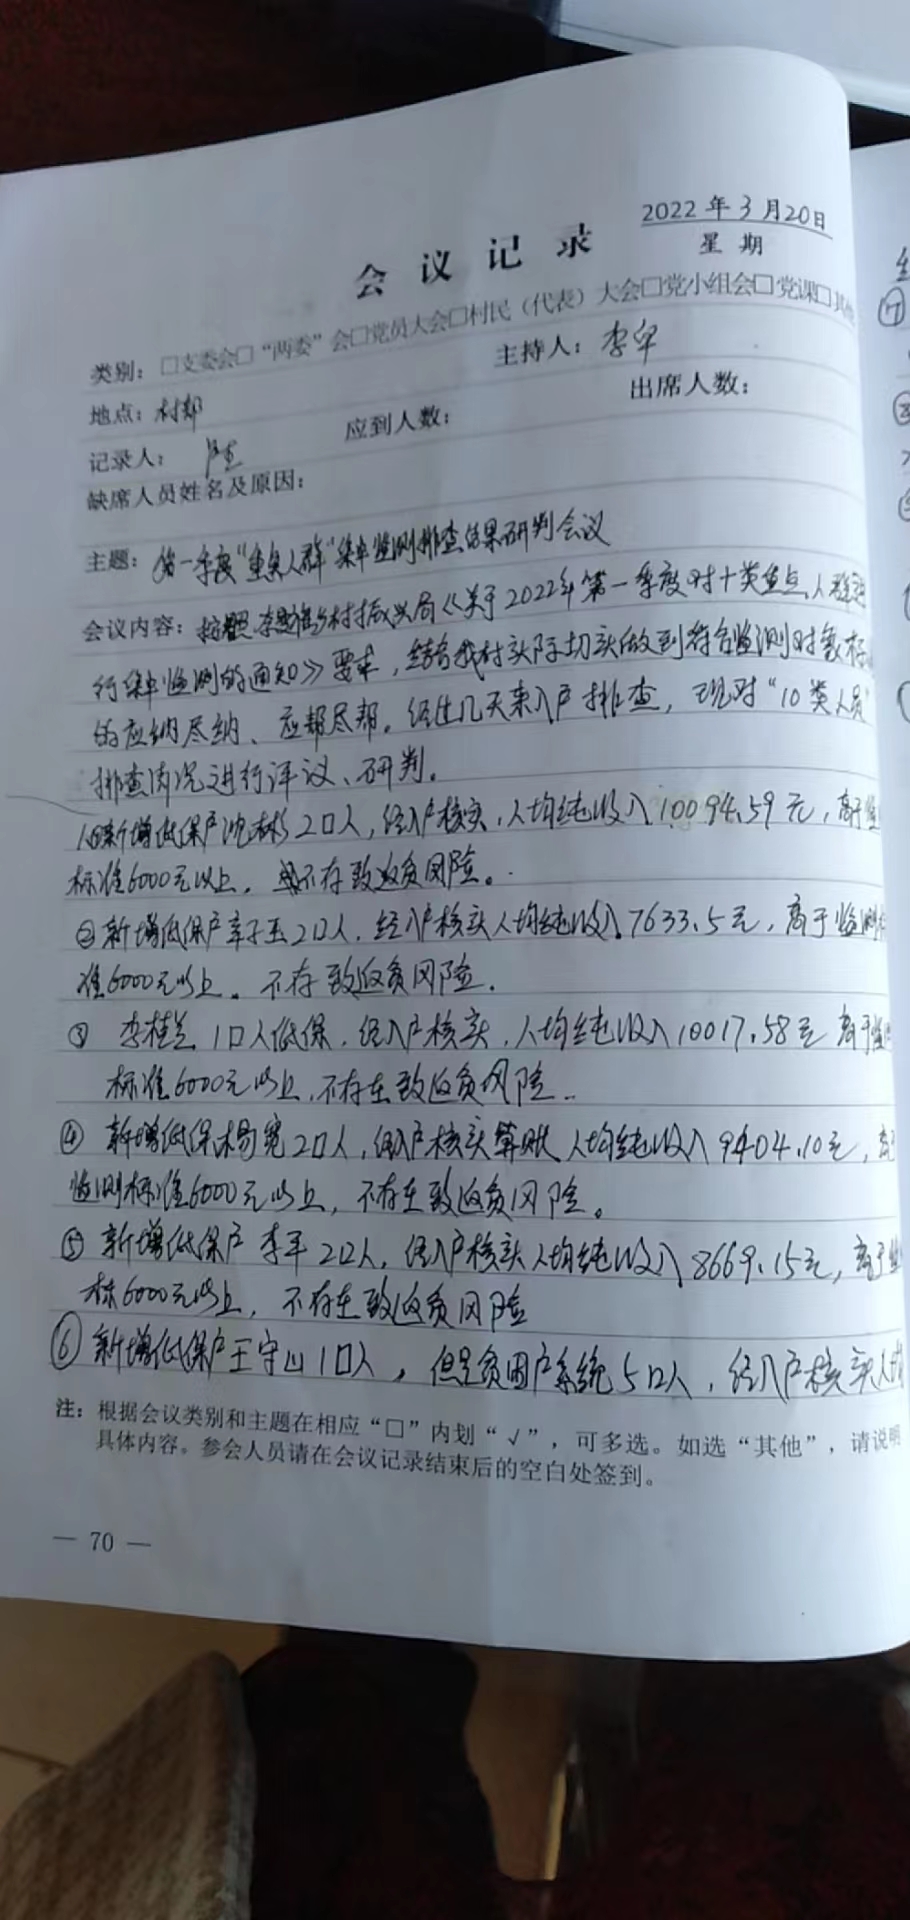 2022年3月20日
会议记录 星期
类别：□支委会□“两委”会□党员大会□村民（代表）大会□党小组会□党课□其他
地点：村部 主持人：李军
记录人： 应到人数： 出席人数：
缺席人员姓名及原因：
主题：第一季度“重点人群”集中监测排查结果研判会议
会议内容：按照乡村振兴局《关于2022年第一季度对十类重点人群进
行集中监测的通知》要求，结合我村实际切实做到符合监测对象标
的应纳尽纳、应帮尽帮。经过几天来入户排查，现对“10类人员”
排查情况进行评议、研判。
1.①新增低保户沈彬2口人，经入户核实，人均纯收入10094.59元，高于监
标准6000元以上，不存致返贫风险。
②新增低保户章子玉2口人，经入户核实人均纯收入7633.5元，高于监测标
准6000元以上。不存致返贫风险。
③ 李桂兰1口人低保，经入户核实，人均纯收入10017.58元 高于监测
标准6000元以上，不存在致返贫风险。
④ 新增低保杨宽2口人，经入户核实算账 人均纯收入9404.10元，高于
监测标准6000元以上，不存在致返贫风险。
⑤ 新增低保户李军2口人，经入户核实人均纯收入8669.15元，高于监
标6000元以上，不存在致返贫风险
⑥新增低保户王守山1口人，但是贫困户系统5口人，经入户核实人均
注：根据会议类别和主题在相应“□”内划“√”，可多选。如选“其他”，请说明
具体内容。参会人员请在会议记录结束后的空白处签到。
— 70 —